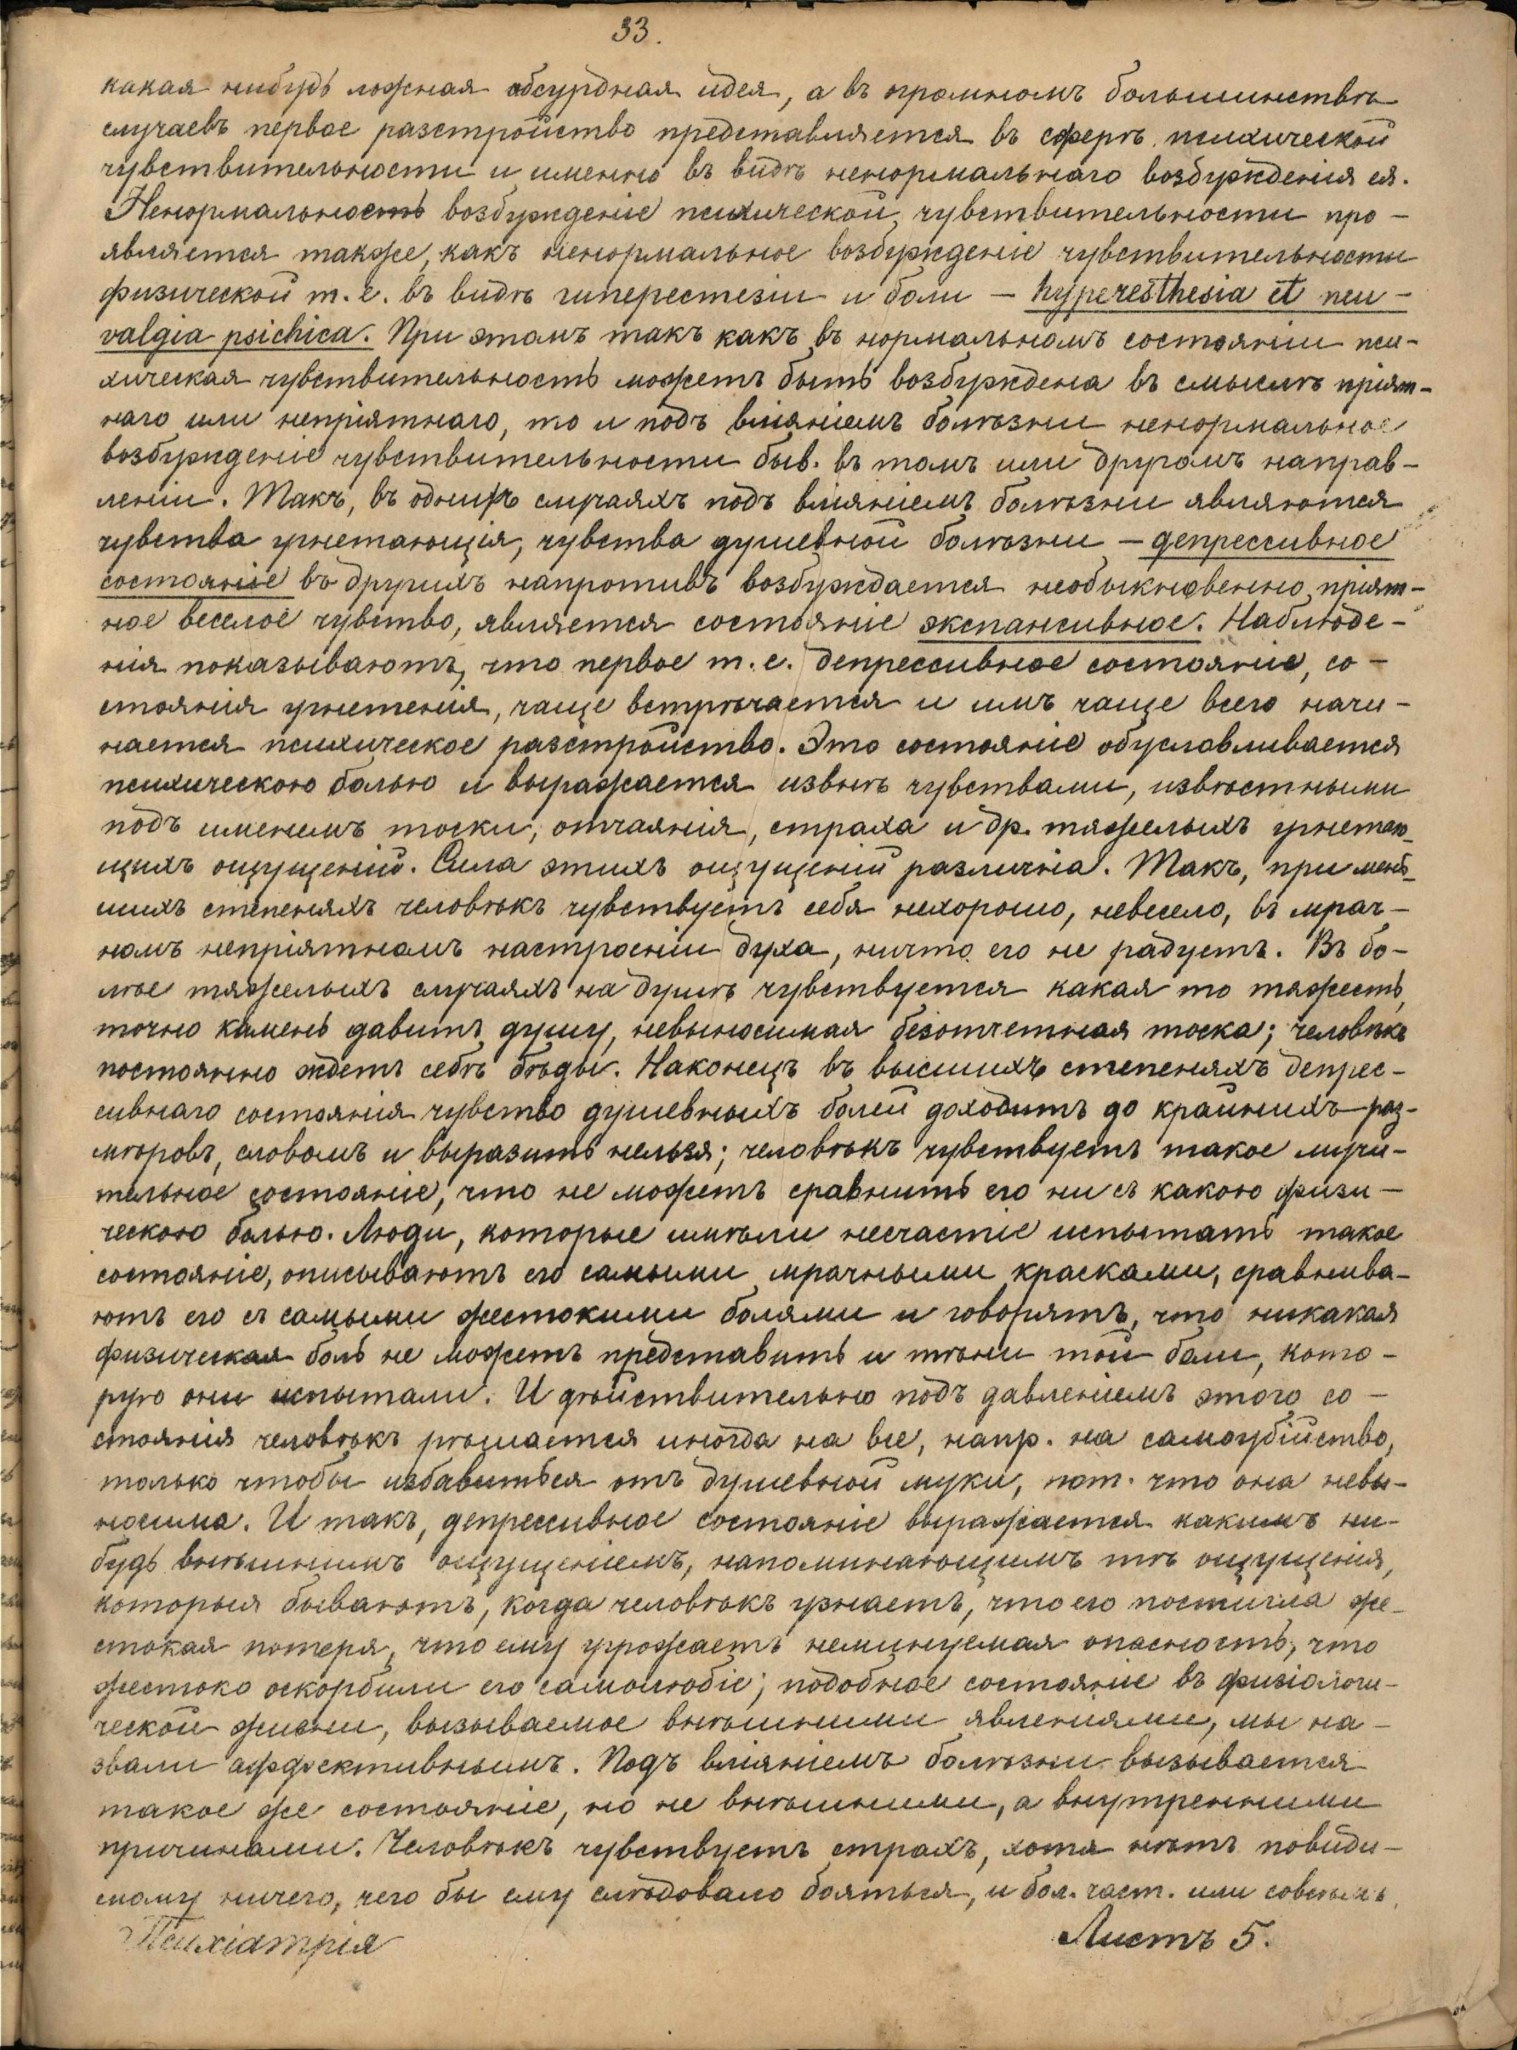 33.
какая нибудь ложная абсурдная идея, а въ огромномъ большинствѣ
случаевъ первое разстройство представляется въ сферѣ психической
чувствительности и именно въ видѣ ненормальнаго возбужденія ея.
Ненормальность возбужденіе психической чувствительности про-
является также, какъ ненормальное возбужденіе чувствительности
физической т. е. въ видѣ гиперестезіи и боли — hyperesthesia et neu-
valgia psichica. При этомъ такъ какъ въ нормальномъ состояніи пси-
хическая чувствительность можетъ быть возбуждена въ смыслѣ пріят-
наго или непріятнаго, то и подъ вліяніемъ болѣзни ненормальное
возбужденіе чувствительности быв. въ томъ или другомъ направ-
леніи. Такъ, въ однихъ случаяхъ подъ вліяніемъ болѣзни являются
чувства угнетающія, чувства душевной болѣзни — депрессивное
состояніе въ другихъ напротивъ возбуждается необыкновенно пріят-
ное веселое чувство, является состояніе экспансивное. Наблюде-
нія показываютъ, что первое т. е. депрессивное состояніе, со-
стоянія угнетенія, чаще встрѣчается и имъ чаще всего начи-
нается психическое разстройство. Это состояніе обусловливается
психическою болью и выражается извнѣ чувствами, извѣстными
подъ именемъ тоски, отчаянія, страха и др. тяжелыхъ угнетаю-
щихъ ощущеній. Сила этихъ ощущеній различна. Такъ, при мень-
шихъ степеняхъ человѣкъ чувствуетъ себя нехорошо, невесело, въ мрач-
номъ непріятномъ настроеніи духа, ничто его не радуетъ. Въ бо-
лѣе тяжелыхъ случаяхъ на душѣ чувствуется какая то тяжесть,
точно камень давитъ душу, невыносимая безотчетная тоска; человѣкъ
постоянно ждетъ себѣ бѣды. Наконецъ въ высшихъ степеняхъ депрес-
сивнаго состоянія чувство душевныхъ болей доходитъ до крайнихъ раз-
мѣровъ, словомъ и выразить нельзя; человѣкъ чувствуетъ такое мучи-
тельное состояніе, что не можетъ сравнить его ни съ какою физи-
ческою болью. Люди, которые имѣли несчастіе испытать такое
состояніе, описываютъ его самыми мрачными красками, сравнива-
ютъ его съ самыми жестокими болями и говорятъ, что никакая
физическая боль не можетъ представить и тѣни той боли, кото-
рую они испытали. И дѣйствительно подъ давленіемъ этого со-
стоянія человѣкъ рѣшается иногда на все, напр. на самоубійство,
только чтобы избавиться отъ душевной муки, пот. что она невы-
носима. И такъ, депрессивное состояніе выражается какимъ ни-
будь внѣшнимъ ощущеніемъ, напоминающимъ тѣ ощущенія,
которыя бываютъ, когда человѣкъ узнаетъ, что его постигла же-
стокая потеря, что ему угрожаетъ неминуемая опасность, что
жестоко оскорбили его самолюбіе; подобное состояніе въ физіологи-
ческой жизни, вызываемое внѣшними явленіями, мы на-
звали аффективнымъ. Подъ вліяніемъ болѣзни вызывается
такое же состояніе, но не внѣшними, а внутренними
причинами. Человѣкъ чувствуетъ страхъ, хотя нѣтъ повиди-
мому ничего, чего бы ему слѣдовало бояться, и бол. част. или совсѣмъ
Психіатрія
Листъ 5.